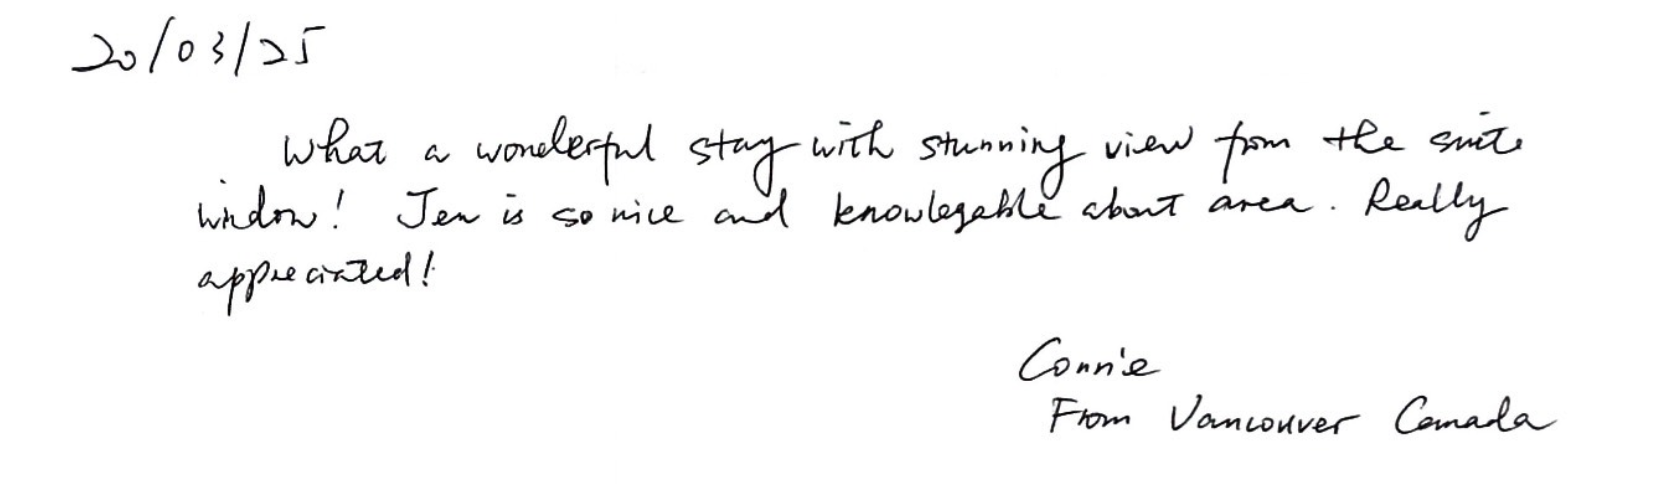 20/03/25
What a wonderful stay with stunning view from the suite
window! Jen is so nice and knowlegable about area. Really
appreciated!
Connie
From Vancouver Canada